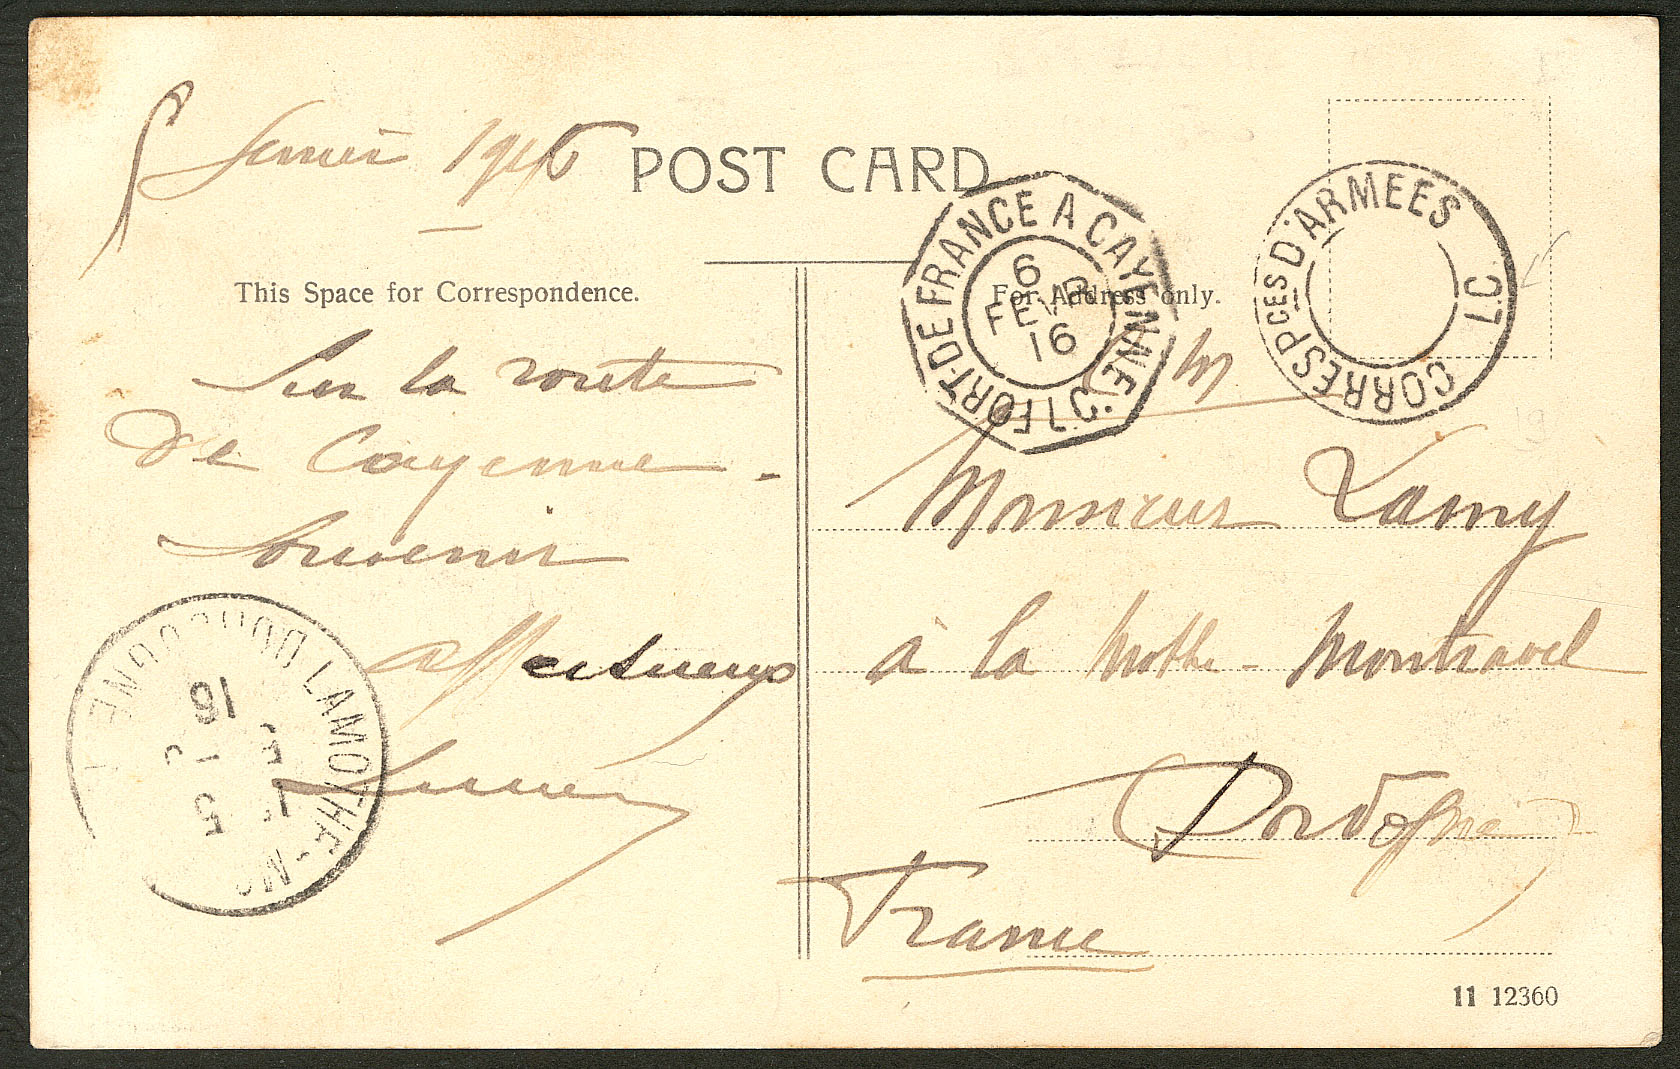 février 1916
POST CARD
This Space for Correspondence.
For Address only.
FORT-DE-FRANCE A CAYENNE LC
6
FEVR
16
CORRESPCES D'ARMEES
LC
Sur la route
de Cayenne -
Souvenir
affectueux
Monsieur Lamy
à la Mothe - Montravel
Dordogne
France
LAMOTHE-MO
16
5
11 12360